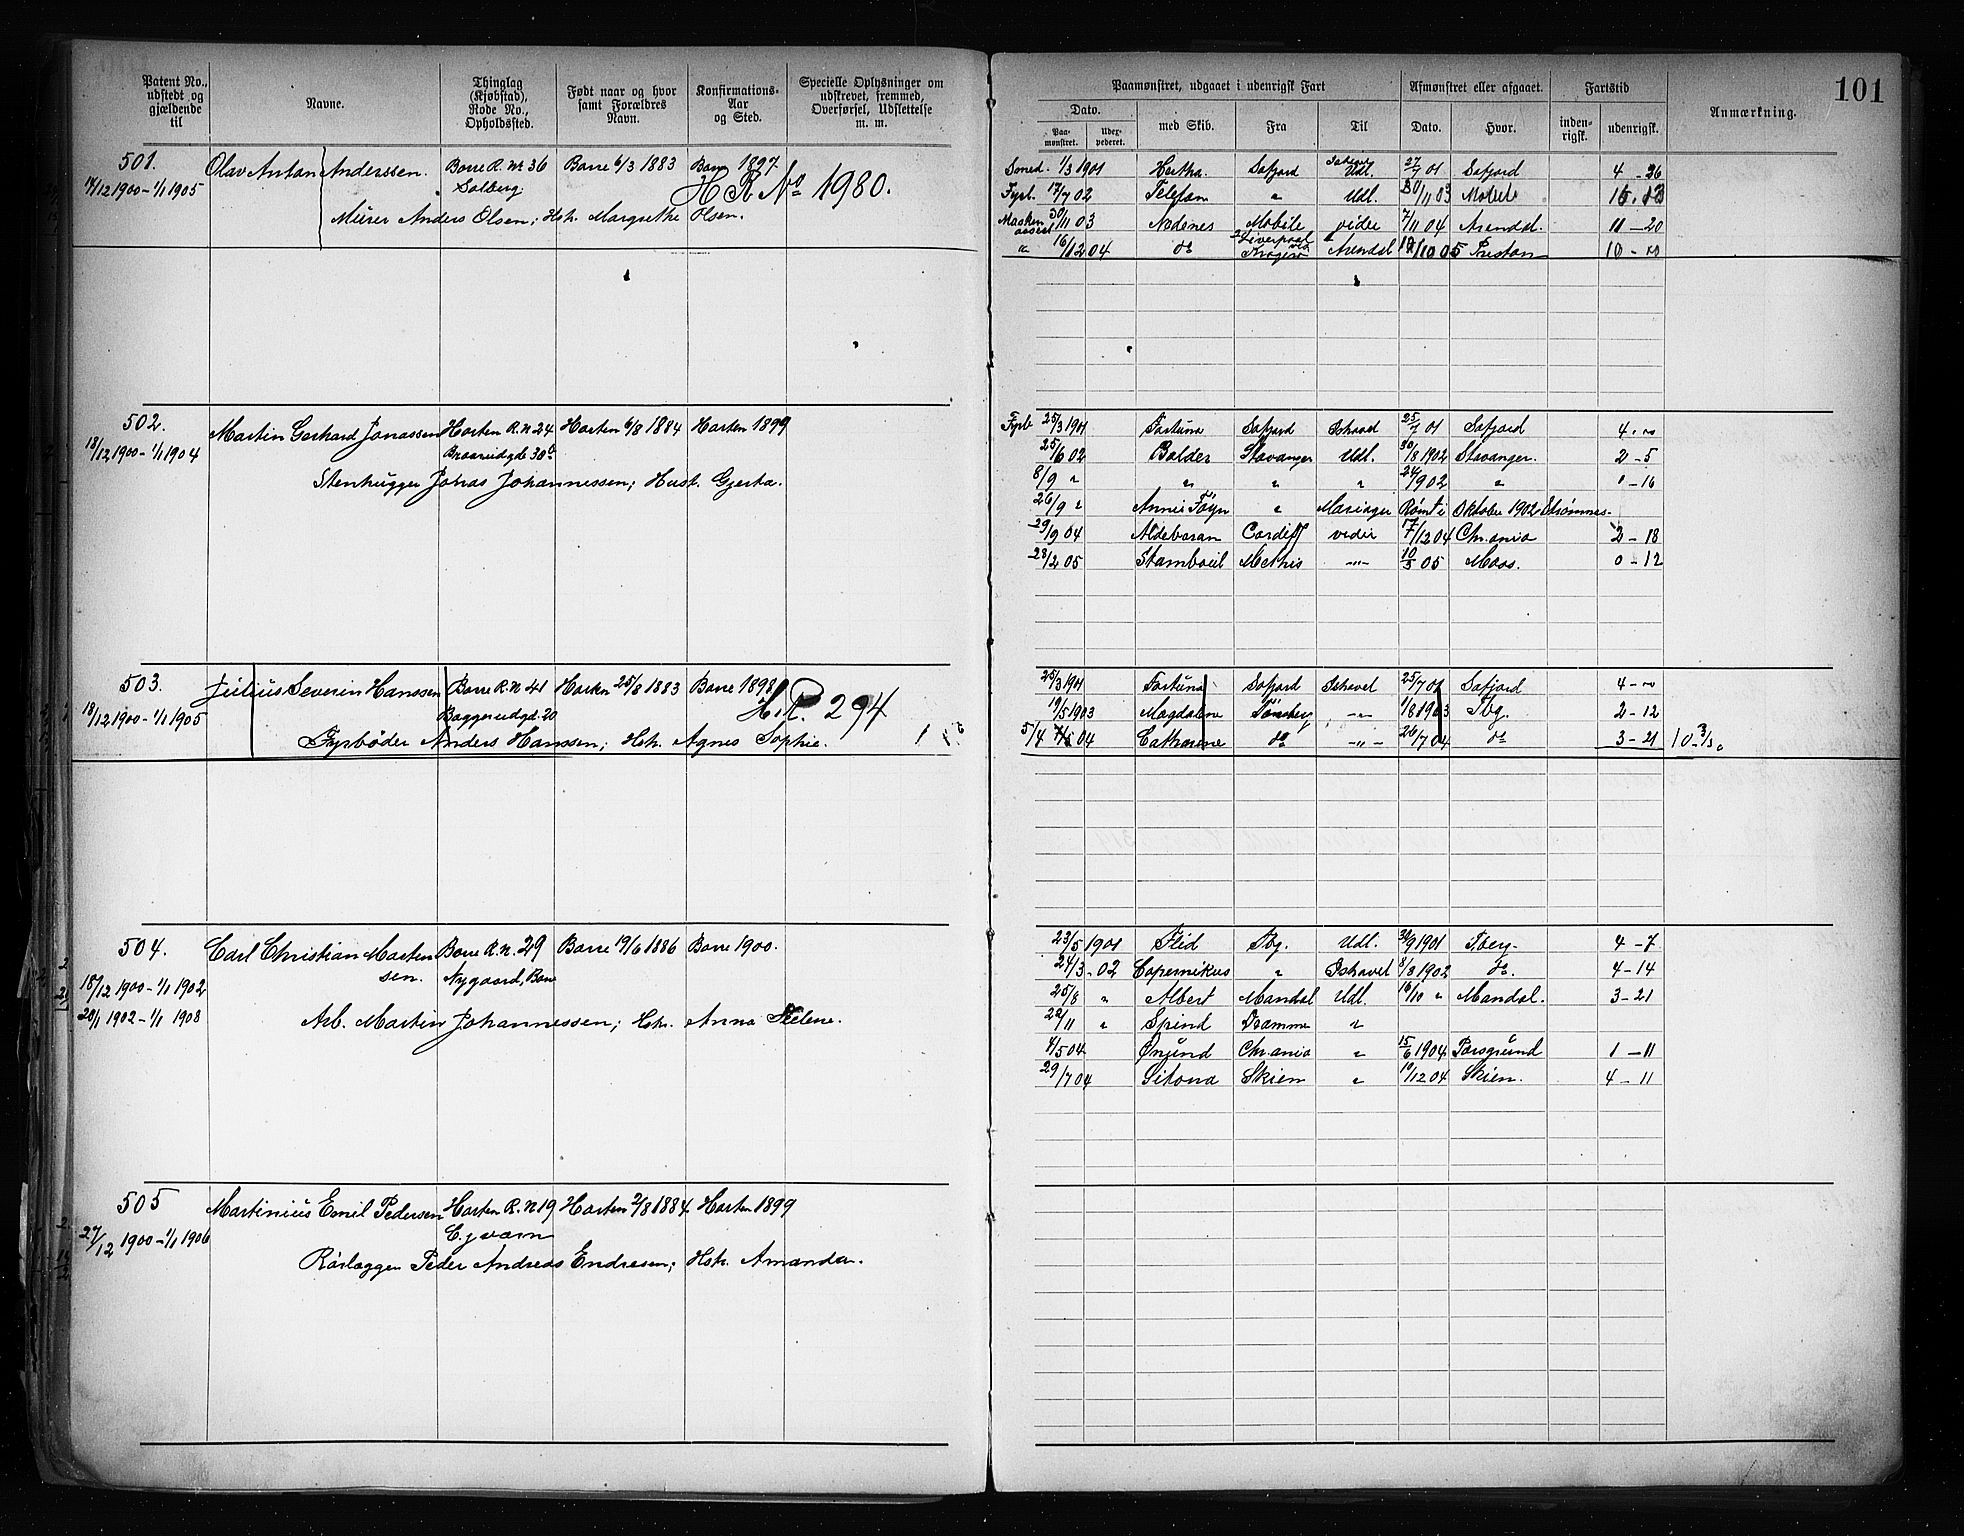 Patent No., udstedt og gjældende til
Navne.
Thinglag (Kjøbstad), Rode No., Opholdssted.
Født naar og hvor samt Forældres Navn.
Konfirmations-Aar og Sted.
Specielle Oplysninger om udskrevet, fremmed, Overførsel, Udslettelse m. m.
Paamønstret, udgaaet i udenrigsk Fart
Afmønstret eller afgaaet.
Fartstid
Anmærkning.
101
Dato.
med Skib.
Fra
Til
Dato.
Hvor.
inden-rigsk.
udenrigsk.
Paa-mønstret.
Udex-pederet.
501. Olav Anton Anderssen. Borre R. No 36 Borre 6/3 1883 Borre 1897
14/12 1900 - 1/1 1905 Solberg H R No 1980.
Murer Anders Olsen; Hst. Margrethe Olsen.
1/3 1901 Hertha Udl. 27/7 01 4 - 26
Fyrb. 17/7 02 Telefon " Udl. 30/11 03 Mobile
30/11 03 Nedenes Mobile vider 7/11 04 Arendal. 11 - 20
" 16/12 04 do Liverpool Kragerø Arendal Preston
502. Martin Gerhard Jonassen Horten R. N 24 Horten 6/8 1884 Horten 1899
18/12 1900 - 1/1 1904 30a
Stenhugger Jonas Johannessen; Hust. Gjerta.
Fyrb 25/3 1901 Fortuna Ishavet 25/7 01 4 - "
25/6 02 Balder Stavanger Udl. 30/8 1902 Stavanger. 2 - 5
8/9 " " " " 24/9 02 " 0 - 16
26/9 " Annie Føyn " Mariager Rømt i Oktober 1902 Strømnes.
29/9 04 Aldebaran Cardiff vider 17/12 04 Chr.ania 2 - 18
28/2 05 Stamboul Methis -"- 10/3 05 Moss. 0 - 12
503. Julius Severin Hanssen Borre R. N 41 Horten 25/8 1883 Borre 1898
18/12 1900 - 1/1 1905 Baggerudgd. 20 H. R. 294
Fyrbøder Anders Hanssen; Hst. Agnes Sophie.
25/3 1901 Fortuna Ishavet 25/7 01 4 - "
19/5 1903 Magdalene Tønsberg -"- 1/8 1903 Tbg. 2 - 12
5/4 04 Catharine do -"- 26/7 04 do 3 - 21
504. Carl Christian Marten- Borre R. N. 29 Borre 19/6 1886 Borre 1900.
sen. Nygaard, Borre
18/12 1900 - 1/1 1902
28/1 1902 - 1/1 1908 Arb. Martin Johannessen; Hst. Anna Helene.
23/5 1901 Flid Tbg. Udl. 1901 Tberg. 4 - 7
24/3 - 02 Copernikus " Ishavet 8/8 1902 do. 4 - 14
25/8 " Albert Mandal Udl. 16/10 " Mandal. 3 - 21
22/11 " Spind Dramme "
4/5 04 Ønund Chr.ania " 15/6 1904 Porsgrund 1 - 11
29/7 04 Sitona Skien " 10/12 04 Skien. 4 - 11
505 Martinius Emil Pedersen Horten R. N 19 Horten 2/8 1884 Horten 1899
27/12 1900 - 1/1 1906
Rørlægger Peder Andreas Endresen; Hst. Amanda.